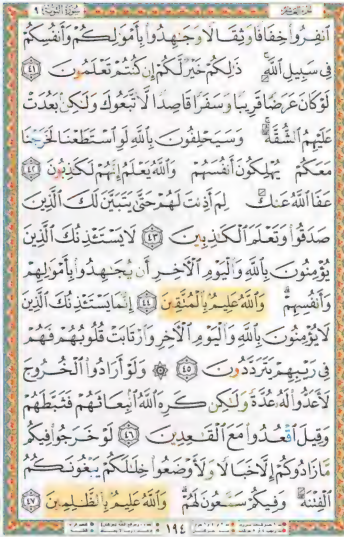 سُورَةُ التَّوْبَةِ ٩
ٱنفِرُوا۟ خِفَافًا وَثِقَالًا وَجَٰهِدُوا۟ بِأَمْوَٰلِكُمْ وَأَنفُسِكُمْ
فِى سَبِيلِ ٱللَّهِ ۚ ذَٰلِكُمْ خَيْرٌ لَّكُمْ إِن كُنتُمْ تَعْلَمُونَ ٤١
لَوْ كَانَ عَرَضًا قَرِيبًا وَسَفَرًا قَاصِدًا لَّٱتَّبَعُوكَ وَلَٰكِنۢ بَعُدَتْ
عَلَيْهِمُ ٱلشُّقَّةُ ۚ وَسَيَحْلِفُونَ بِٱللَّهِ لَوِ ٱسْتَطَعْنَا لَخَرَجْنَا
مَعَكُمْ يُهْلِكُونَ أَنفُسَهُمْ وَٱللَّهُ يَعْلَمُ إِنَّهُمْ لَكَٰذِبُونَ ٤٢
عَفَا ٱللَّهُ عَنكَ لِمَ أَذِنتَ لَهُمْ حَتَّىٰ يَتَبَيَّنَ لَكَ ٱلَّذِينَ
صَدَقُوا۟ وَتَعْلَمَ ٱلْكَٰذِبِينَ ٤٣ لَا يَسْتَـْٔذِنُكَ ٱلَّذِينَ
يُؤْمِنُونَ بِٱللَّهِ وَٱلْيَوْمِ ٱلْءَاخِرِ أَن يُجَٰهِدُوا۟ بِأَمْوَٰلِهِمْ
وَأَنفُسِهِمْ ۗ وَٱللَّهُ عَلِيمٌۢ بِٱلْمُتَّقِينَ ٤٤ إِنَّمَا يَسْتَـْٔذِنُكَ ٱلَّذِينَ
لَا يُؤْمِنُونَ بِٱللَّهِ وَٱلْيَوْمِ ٱلْءَاخِرِ وَٱرْتَابَتْ قُلُوبُهُمْ فَهُمْ
فِى رَيْبِهِمْ يَتَرَدَّدُونَ ٤٥ ۞ وَلَوْ أَرَادُوا۟ ٱلْخُرُوجَ
لَأَعَدُّوا۟ لَهُۥ عُدَّةً وَلَٰكِن كَرِهَ ٱللَّهُ ٱنۢبِعَاثَهُمْ فَثَبَّطَهُمْ
وَقِيلَ ٱقْعُدُوا۟ مَعَ ٱلْقَٰعِدِينَ ٤٦ لَوْ خَرَجُوا۟ فِيكُم
مَّا زَادُوكُمْ إِلَّا خَبَالًا وَلَأَوْضَعُوا۟ خِلَٰلَكُمْ يَبْغُونَكُمُ
ٱلْفِتْنَةَ وَفِيكُمْ سَمَّٰعُونَ لَهُمْ ۗ وَٱللَّهُ عَلِيمٌۢ بِٱلظَّٰلِمِينَ ٤٧
١٩٤